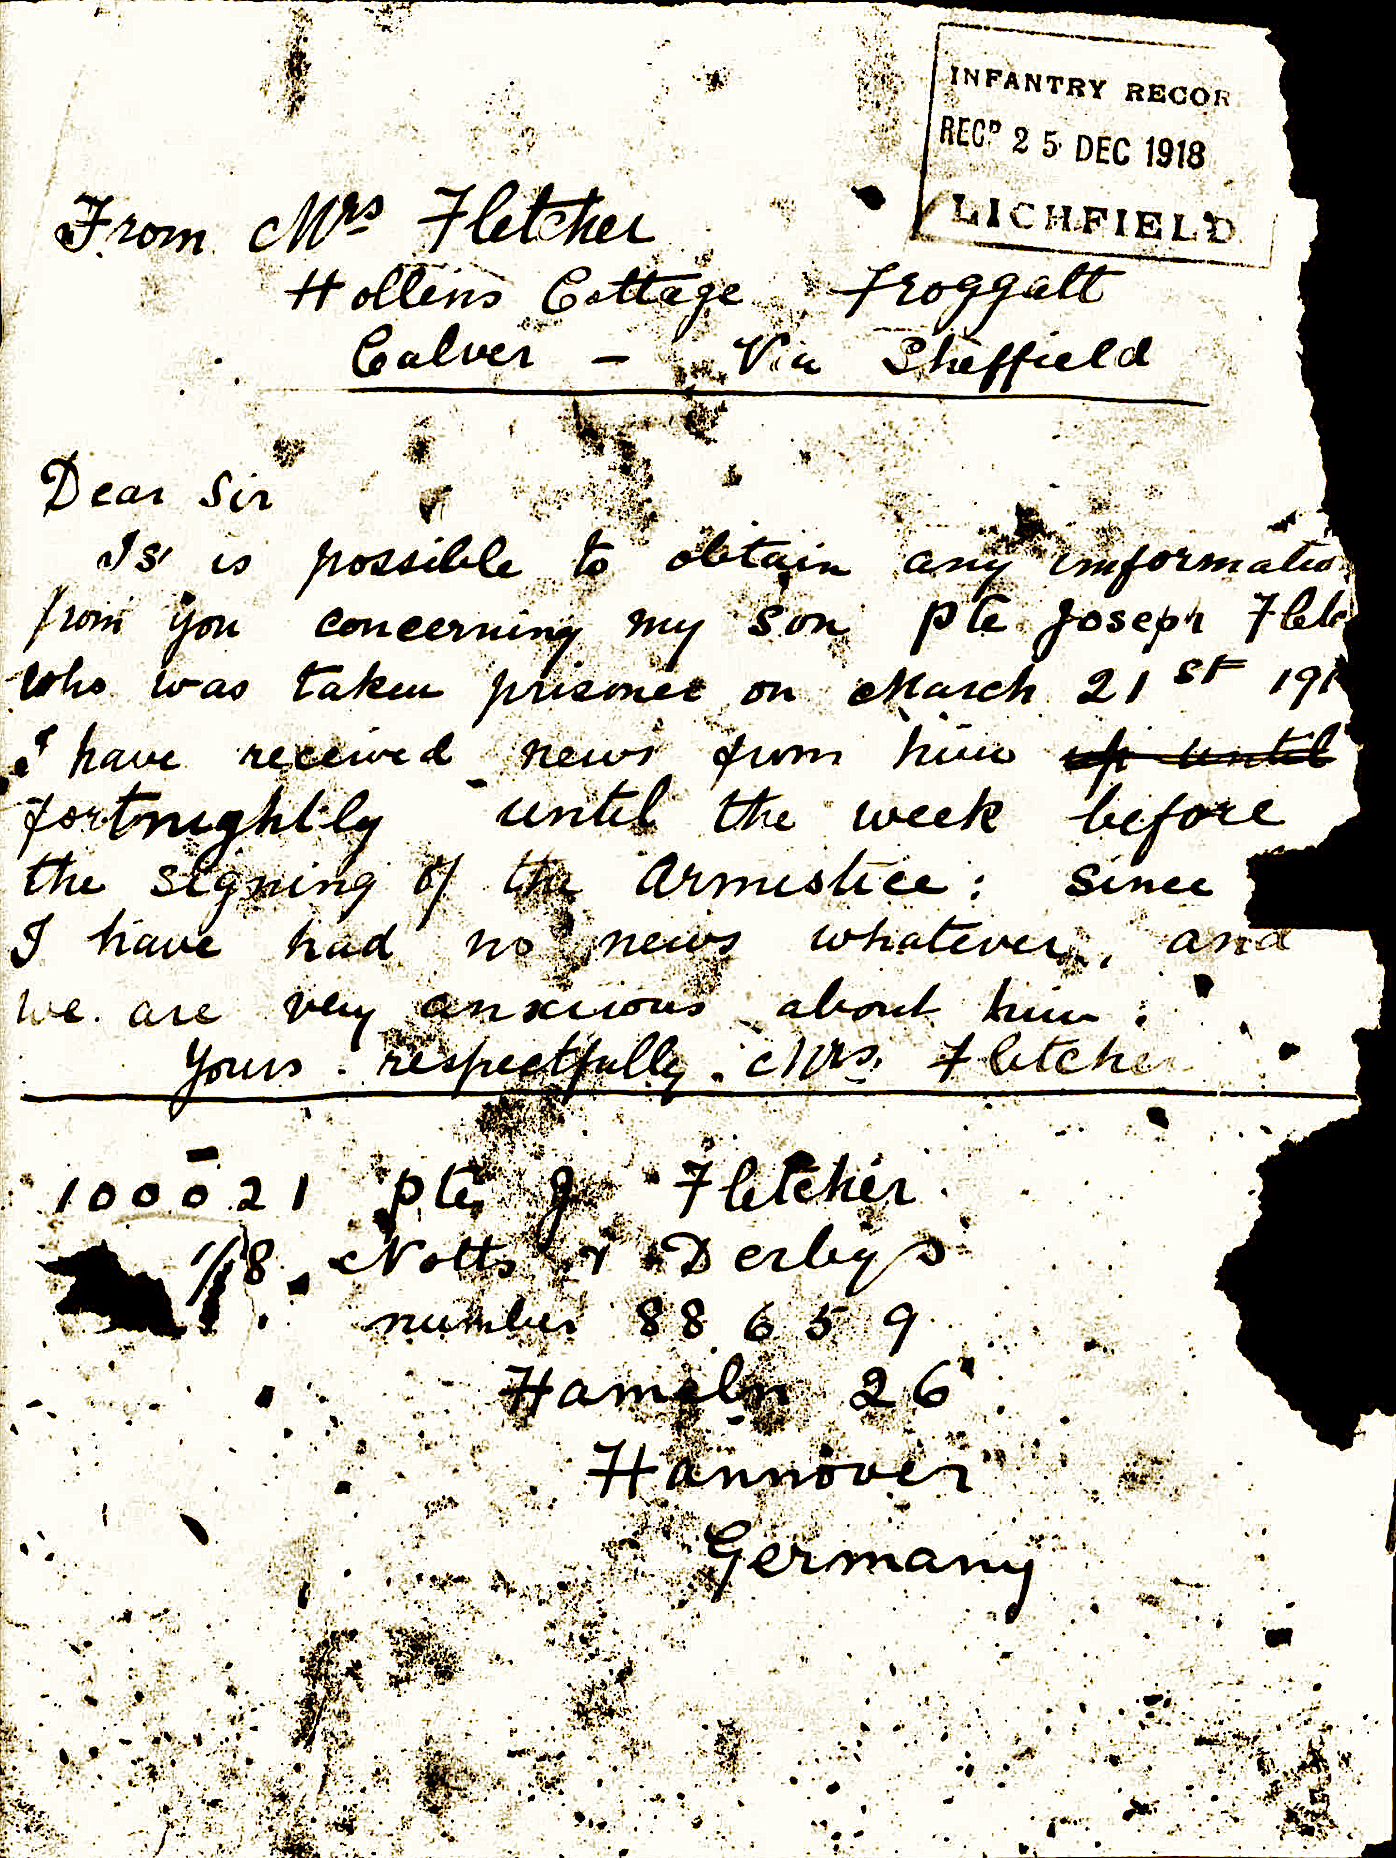 INFANTRY RECOR
RECD 25 DEC 1918
LICHFIELD
From Mrs Fletcher
Hollins Cottage Froggatt
Calver - Via Sheffield
Dear Sir
Is is possible to obtain any imformatio
from you concerning my son Pte Joseph Fletc
who was taken prisoner on March 21st 191
I have received news from him up until
fortnightly until the week before
the signing of the Armistice: since
I have had no news whatever, and
we are very anxious about him:
Yours respectfully. Mrs. Fletcher
100021 Pte J Fletcher
1/8 Notts & Derbys
number 88659
Hameln 26
Hannover
Germany